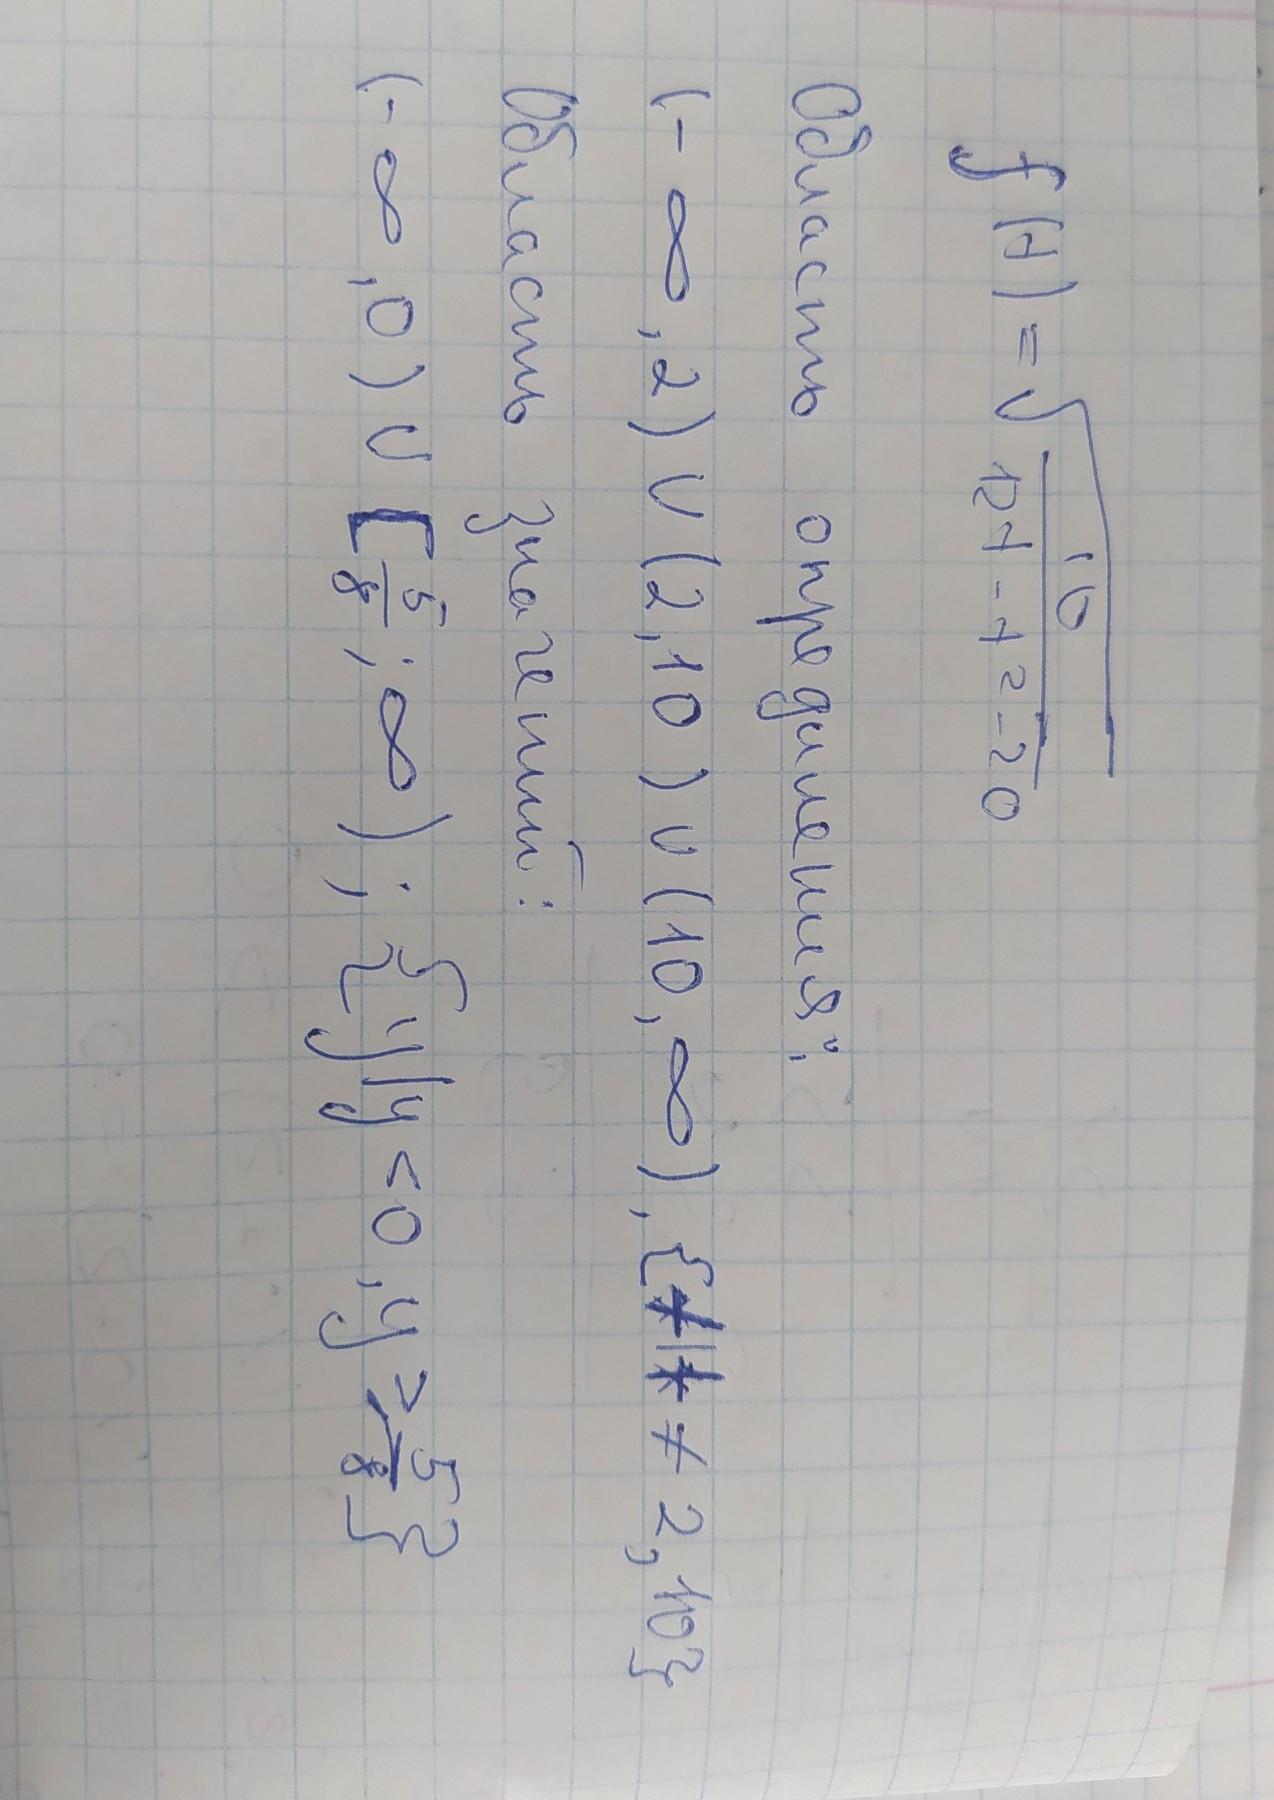 f(x) = √ 10 / 12x - x2 - 20
Область определения:
(- ∞, 2) ∪ (2, 10) ∪ (10, ∞), {x|x ≠ 2, 10}
Область значений:
(- ∞, 0) ∪ [5/8; ∞); {y|y < 0, y ≥ 5/8}